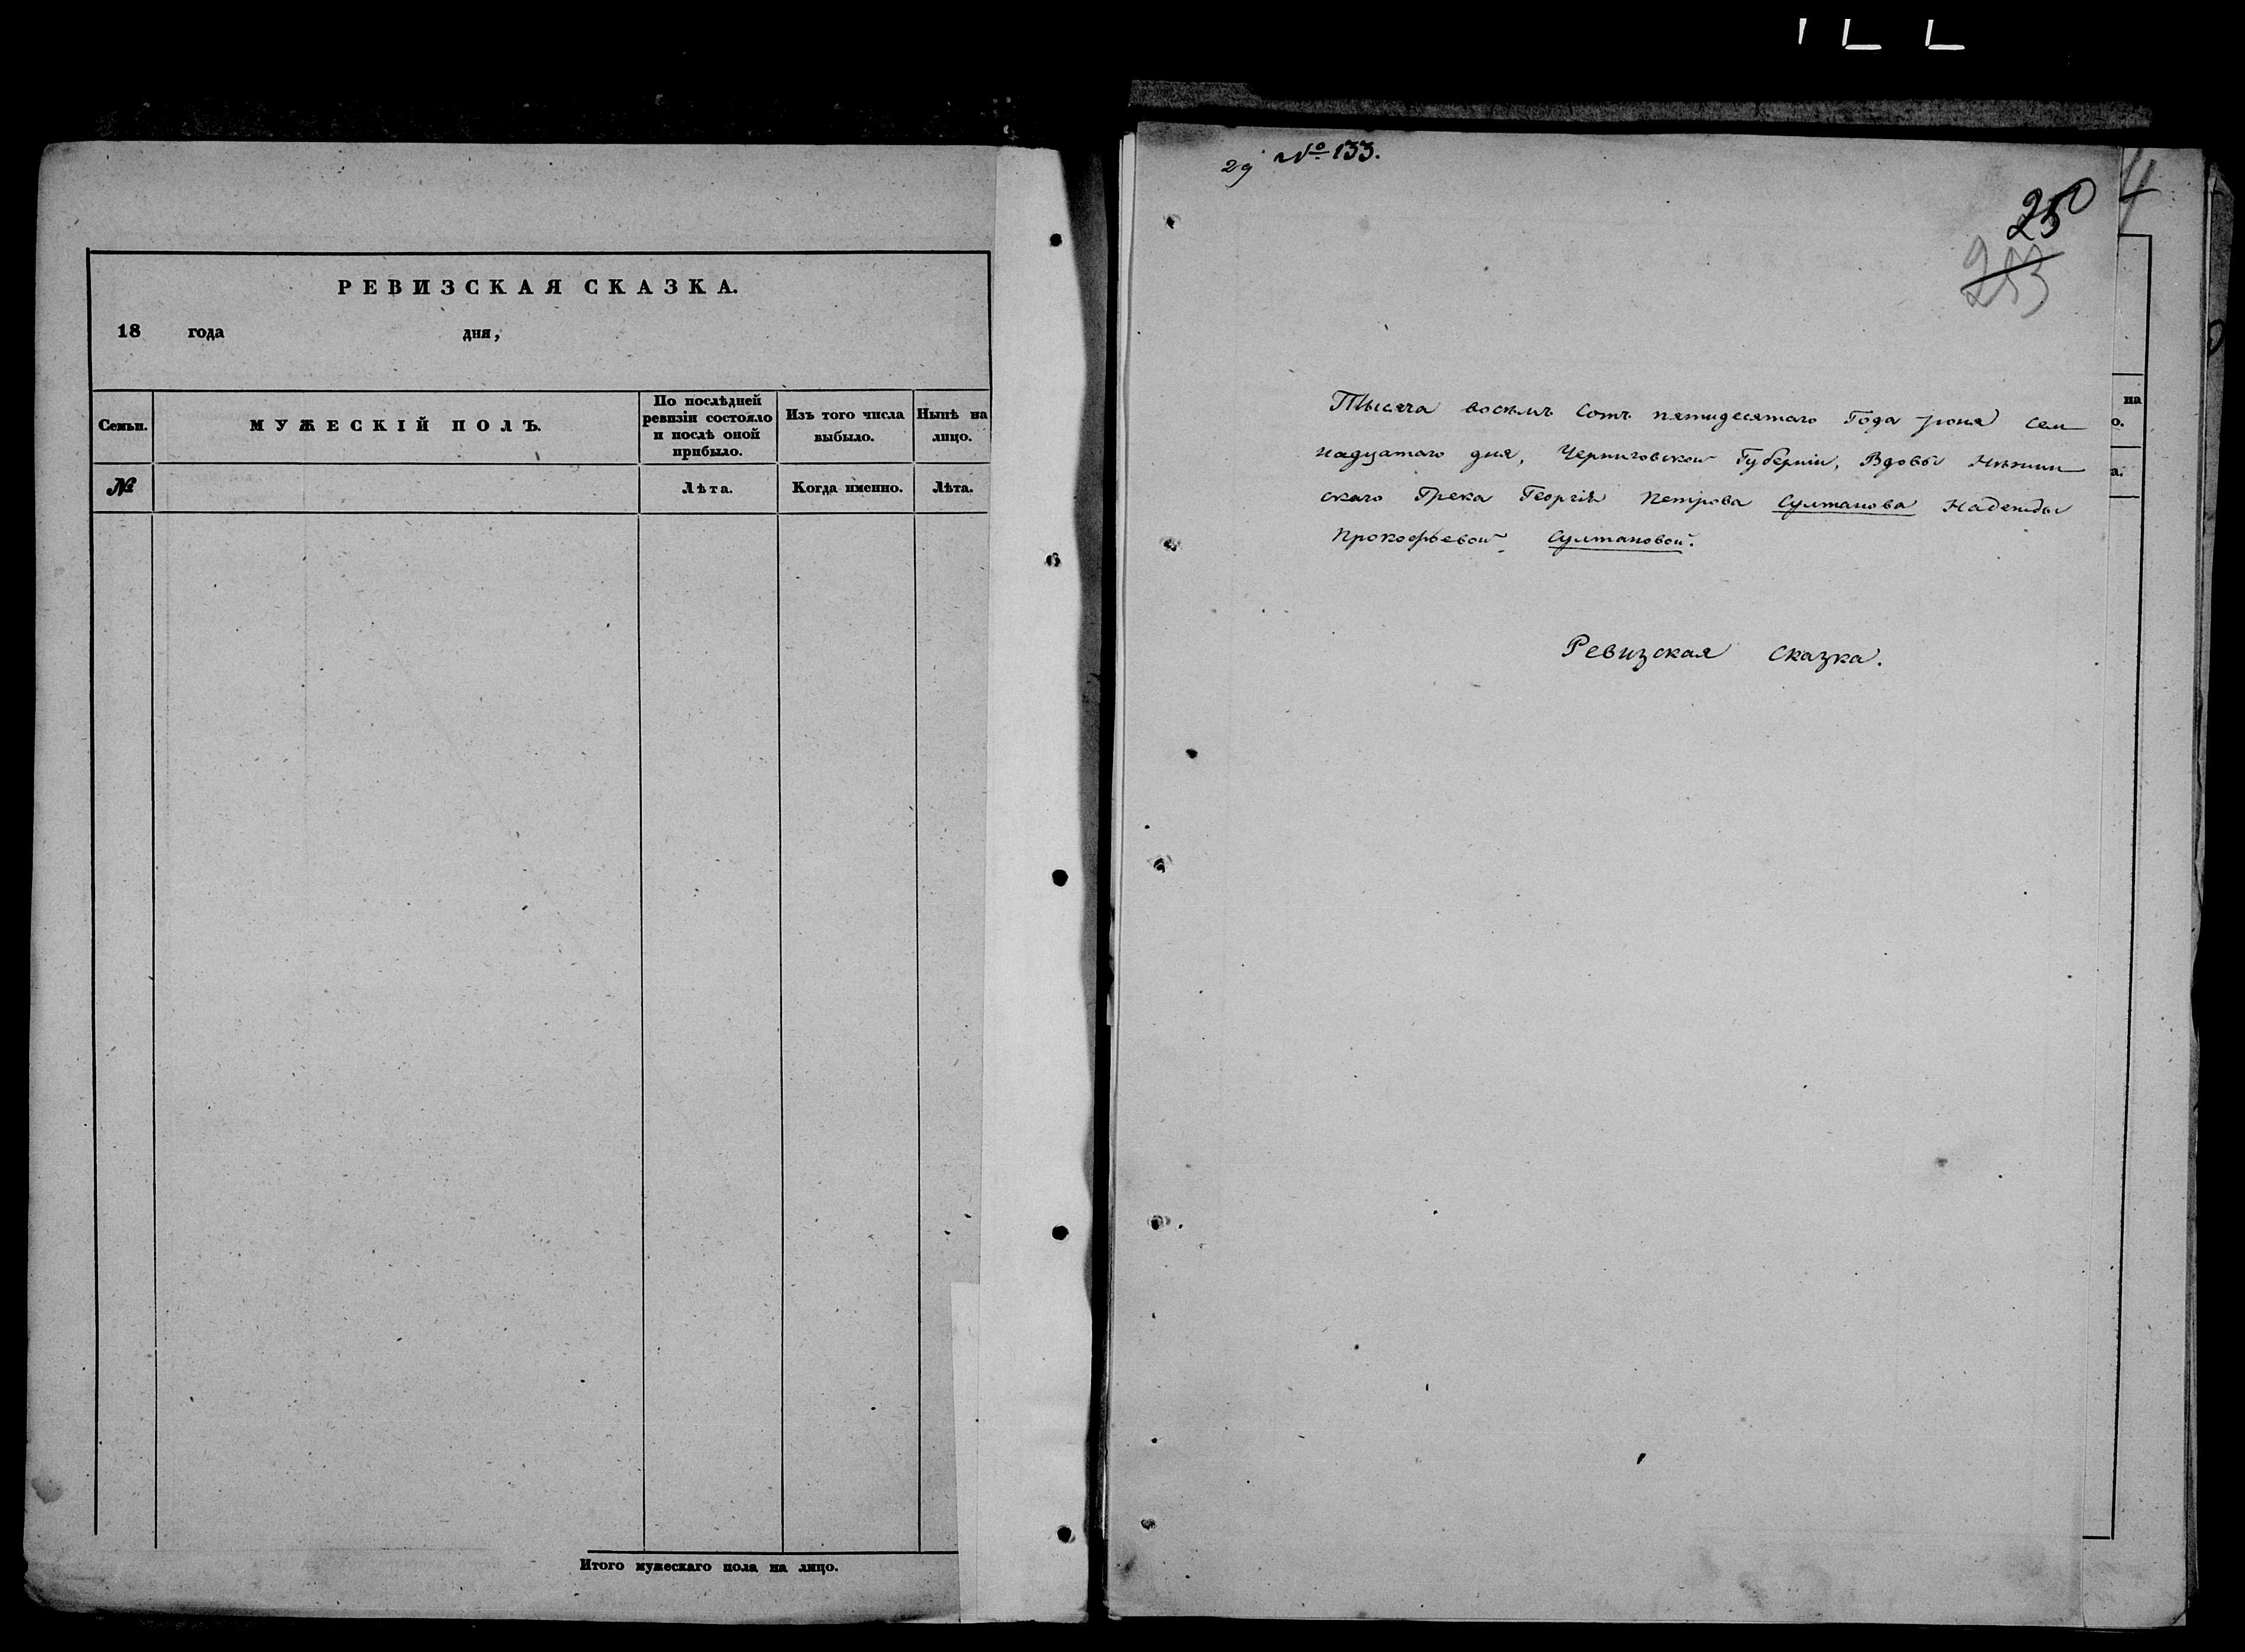 РЕВИЗСКАЯ СКАЗКА.
18 года дня,
Семьи.
МУЖЕСКІЙ ПОЛЪ.
По послѣдней
ревизіи состояло
и послѣ оной
прибыло.
Изъ того числа
выбыло.
Нынѣ на
лицо.
№
Лѣта.
Когда именно.
Лѣта.
Итого мужескаго пола на лицо.
29 № 133.
250
253
Тысяча восемь сотъ пятидесятаго Года Іюня сем
надцатаго дня, Черниговской Губерніи, Вдовы Нѣжин
скаго Грека Георгія Петрова Султанова Надежды
Прокофьевой Султановой.
Ревизская сказка.
4
на
о.
а.